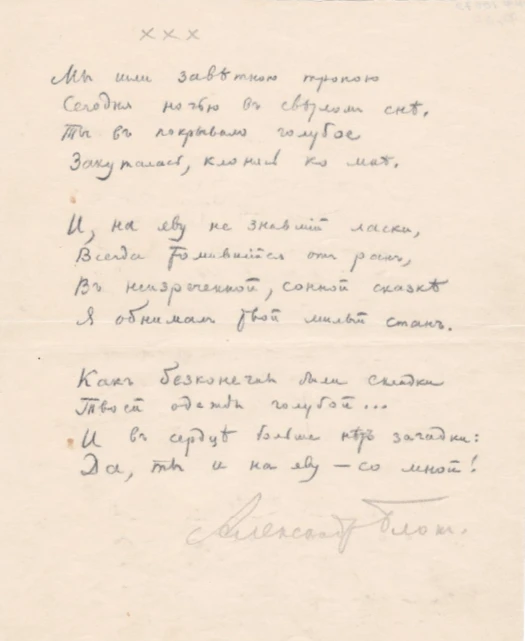 × × ×
Мы шли завѣтною тропою
Сегодня ночью въ свѣтломъ снѣ.
Ты въ покрывало голубое
Закуталась, клонясь ко мнѣ.
И, на яву не знавшій ласки,
Всегда томившійся отъ ранъ,
Въ неизреченной, сонной сказкѣ
Я обнималъ твой милый станъ.
Какъ безконечны были складки
Твоей одежды голубой...
И въ сердцѣ больше нѣтъ загадки:
Да, ты и на яву — со мной!
Александръ Блокъ.